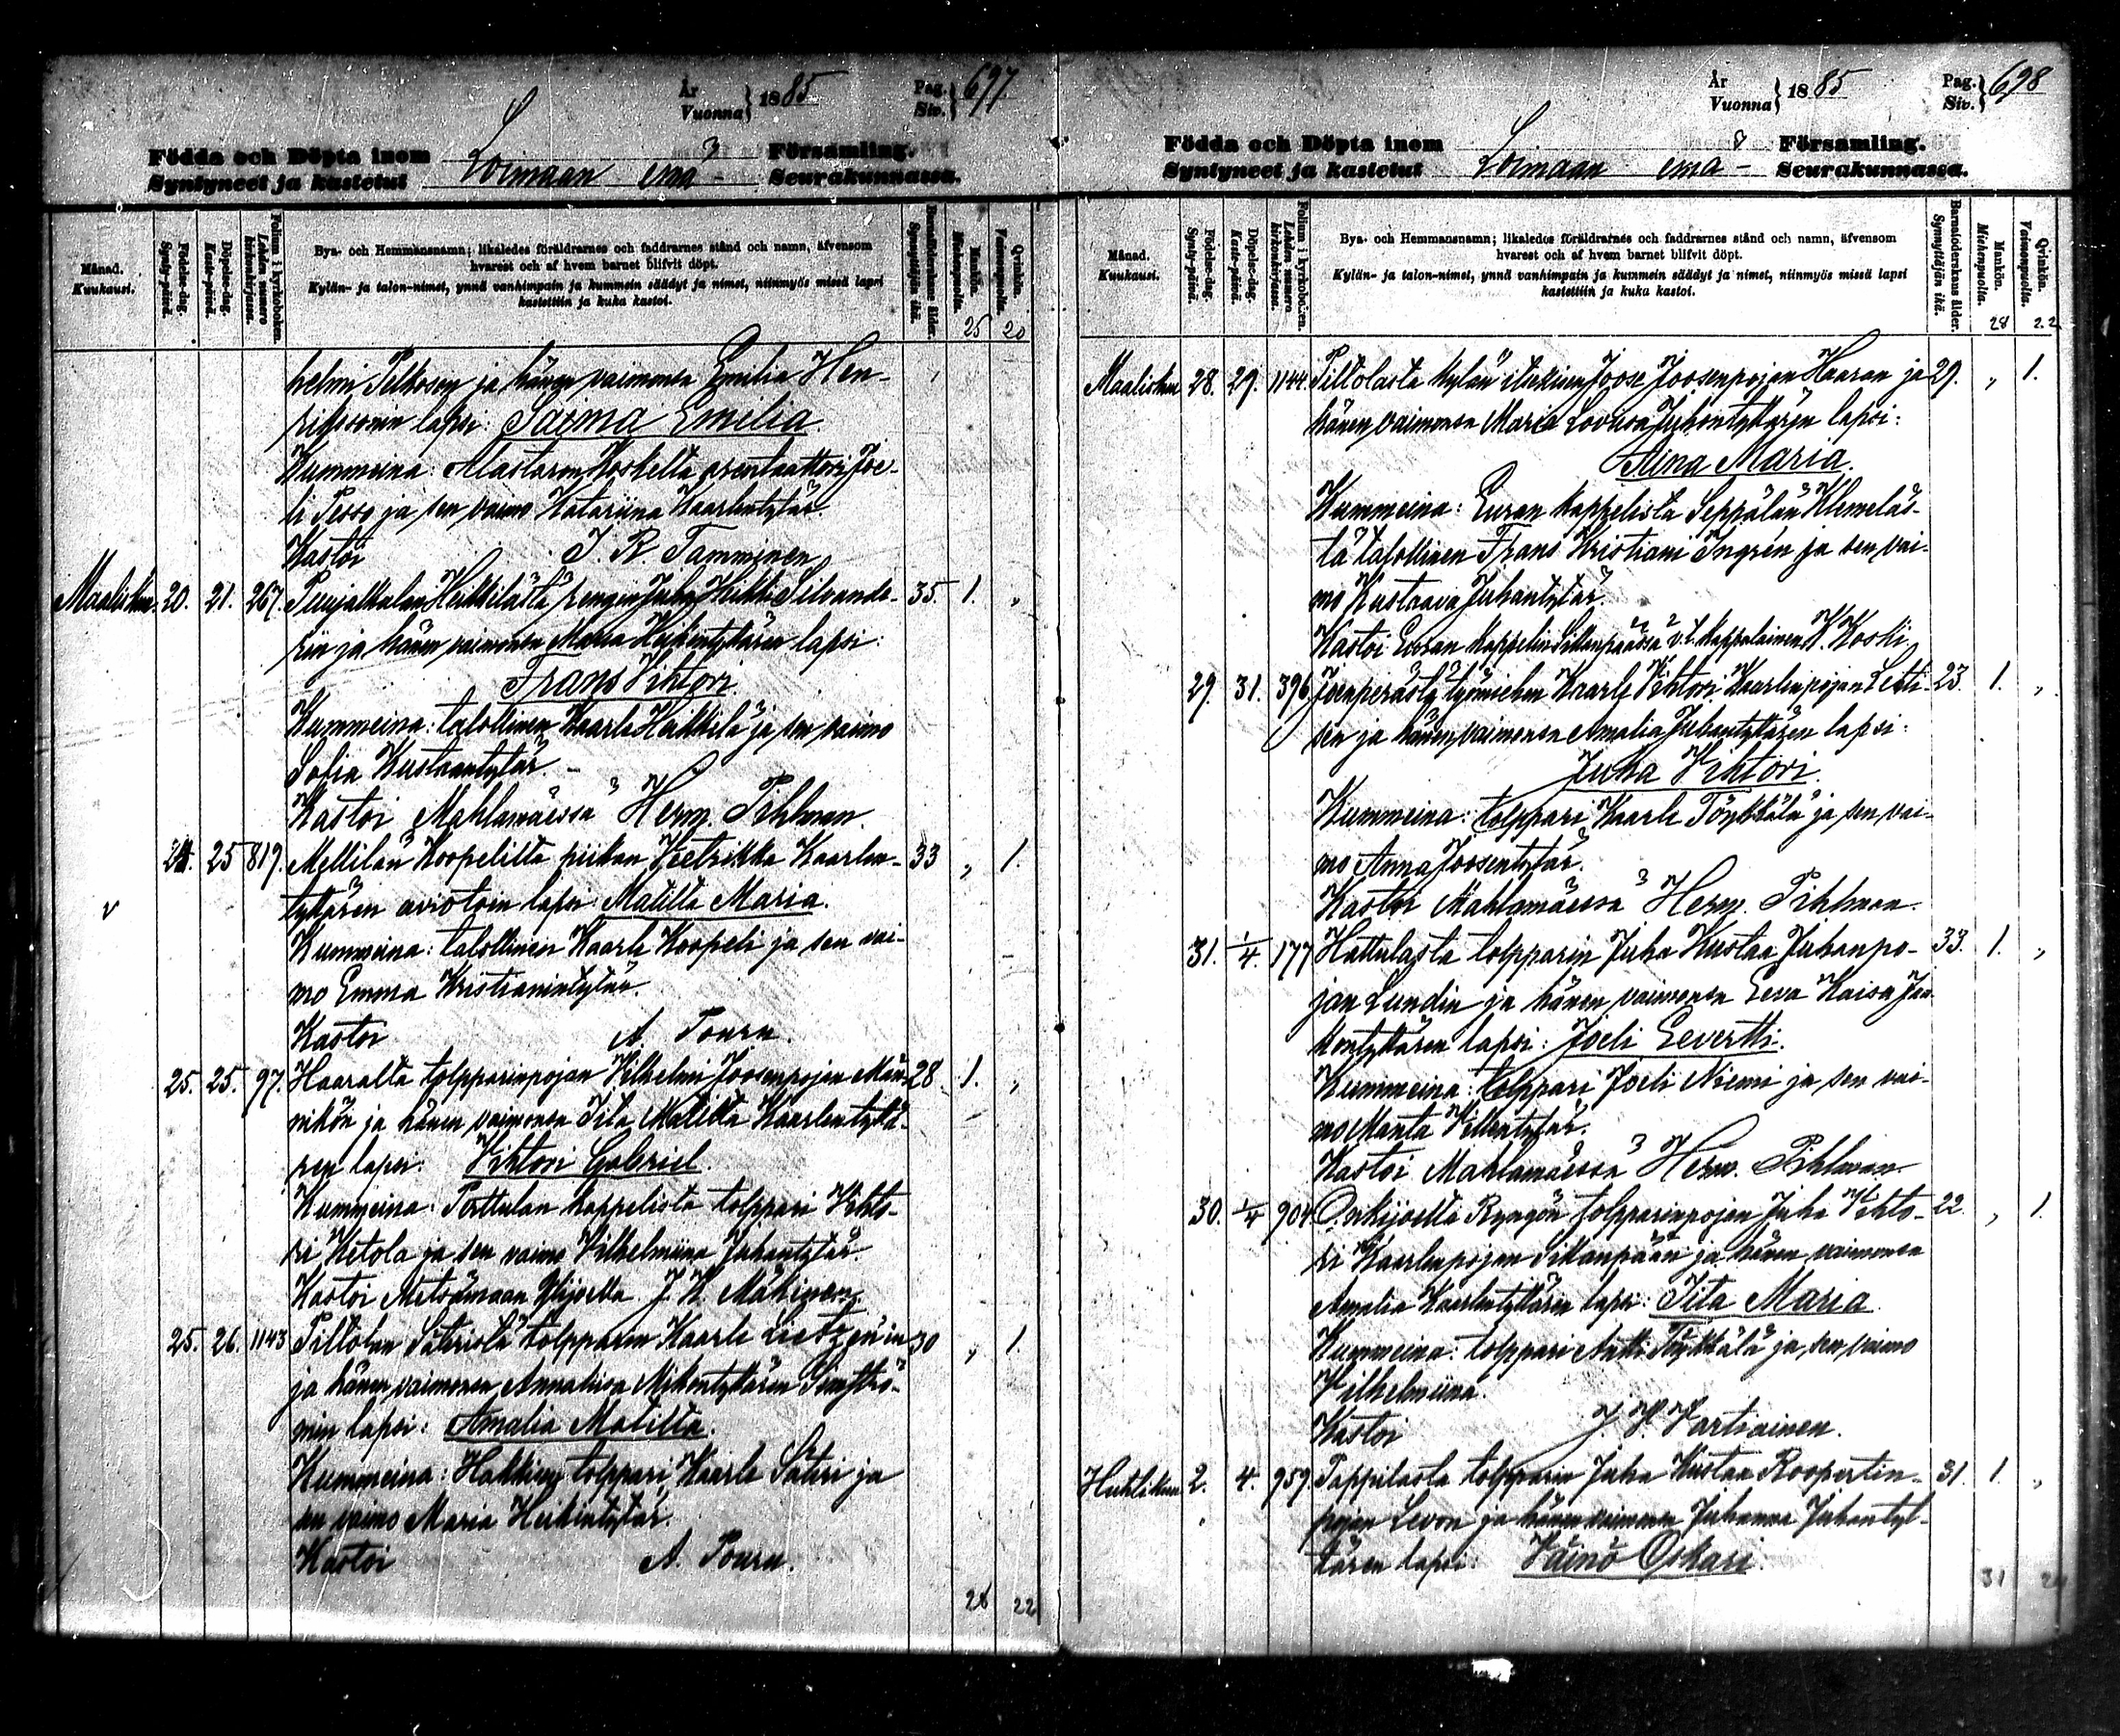 År
Vuonna } 1885
Pag.
Siv. } 697
Födda och Döpta inom Församling.
Syntyneet ja kastetut Loimaan emä- Seurakunnassa.
Månad.
Kuukausi.
Födelse-dag.
Synty-päivä.
Döpelse-dag.
Kaste-päivä.
Folium i kyrkoboken.
Lehden numero kirkonkirjassa.
Bya- och Hemmansnamn; likaledes föräldrarnes och faddrarnes stånd och namn, äfvensom
hvarest och af hvem barnet blifvit döpt.
Kylän- ja talon-nimet, ynnä vanhimpain ja kummein säädyt ja nimet, niinmyös missä lapsi
kastettiin ja kuka kastoi.
Barnaföderskans ålder.
Synnyttäjän ikä.
Mankön.
Miehenpuolta.
Qvinkön.
Vaimonpuolta.
25 20
helmi Pelkosen ja hänen vaimonsa Emilia Hen-
rikssonin lapsi: Saima Emilia
Kummeina: Alastaron Koskelta arentaattori Joe-
li Pesso ja sen vaimo Katariina Kaarlentytär.
Kastoi J. R. Tamminen
Maalisku. 20. 21. 267. Puujalkalan Heikkilästä rengin Juha Heikki Silvande- 35. 1. "
rin ja hänen vaimonsa Maria Heikintyttären lapsi:
Frans Vihtori
Kummeina: talollinen Kaarle Heikkilä ja sen vaimo
Sofia Kustaantytär. -
Kastoi Mahlamäessä Herm. Pihlman.
24. 25 819. Mellilän Koopelilta piikan Veetrikka Kaarlen- 33 " 1.
tyttären avioton lapsi: Matilta Maria.
Kummeina: talollinen Kaarle Koopeli ja sen vai-
mo Emma Kristianintytär.
Kastoi A. Pouru.
25. 25. 97. Haaralta tolpparinpojan Vilhelmi Joosenpojan Män- 28. 1. "
nikön ja hänen vaimonsa Iita Matilta Kaarlentyttä-
ren lapsi: Vihtori Gabriel.
Kummeina: Perttulan kappelista tolppari Vihto-
ri Ketola ja sen vaimo Vilhelmiina Juhantytär.
Kastoi Metsämaan Ylijoella J. H. Mäkinen.
25. 26. 1143 Piltolan Säteristä tolpparin Kaarle Lietzén'in 30 " 1.
ja hänen vaimonsa Annaliisa Mikontyttären
min lapsi: Amalia Matilta.
Kummeina: tolppari Kaarle Säteri ja
sen vaimo Maria Heikintytär.
Kastoi A. Pouru.
28 22
År
Vuonna } 1885
Pag.
Siv. } 698
Födda och Döpta inom Församling.
Syntyneet ja kastetut Loimaan emä- Seurakunnassa.
Månad.
Kuukausi.
Födelse-dag.
Synty-päivä.
Döpelse-dag.
Kaste-päivä.
Folium i kyrkoboken.
Lehden numero kirkonkirjassa.
Bya- och Hemmansnamn; likaledes föräldrarnes och faddrarnes stånd och namn, äfvensom
hvarest och af hvem barnet blifvit döpt.
Kylän- ja talon-nimet, ynnä vanhimpain ja kummein säädyt ja nimet, niinmyös missä lapsi
kastettiin ja kuka kastoi.
Barnaföderskans ålder.
Synnyttäjän ikä.
Mankön.
Miehenpuolta.
Qvinkön.
Vaimonpuolta.
28 22
Maalisku 28. 29. 1144. Piltolasta kylän itsekäisen Joose Joosenpojan Haaran ja 29. " 1.
hänen vaimonsa Maria Lovisa Juhontyttären lapsi:
Aina Maria.
Kummeina: Euran kappelista Seppälän Klemeläs-
tä talollinen Frans Kristiani Ingrén ja sen vai-
mo Kustaava Juhantytär.
Kastoi Euran kappelin Sillanpäässä v.t. kappalainen K. Koski
29. 31. 396 Joenperästä työmiehen Kaarle Vihtori Kaarlenpojan Lehti- 23. 1. "
sen ja hänen vaimonsa Amalia Juhantyttären lapsi:
Juha Vihtori.
Kummeina: tolppari Kaarle Töykkälä ja sen vai-
mo Anna Joosentytär.
Kastoi Mahlamäessä Herm. Pihlman.
31. 1/4. 177 Hattulasta tolpparin Juha Kustaa Juhanpo- 33. 1. "
jan Lundin ja hänen vaimonsa Eeva Kaisa Jaa-
kontyttären lapsi: Joeli Eevertti.
Kummeina: tolppari Joeli Niemi ja sen vai-
mo Manta Villentytär.
Kastoi Mahlamäessä Herm. Pihlman.
30. 1/4 904. Onkijoelta Ryngön tolpparinpojan Juha Vihto- 22. " 1.
ri Kaarlenpojan Sikanpään ja hänen vaimonsa
Amalia Kaarlentyttären lapsi: Iita Maria.
Kummeina: tolppari Antti Töykkälä ja sen vaimo
Vilhelmiina.
Kastoi J. V. Vartiainen.
Huhtikuu 2. 4. 959. Pappilasta tolpparin Juha Kustaa Roopertin- 31. 1. "
pojan Levon ja hänen vaimonsa Juhanna Juhantyt-
tären lapsi: Väinö Oskari.
31